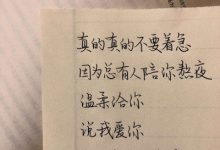 真的真的不要着急
因为总有人陪你熬夜
温柔给你
说我爱你